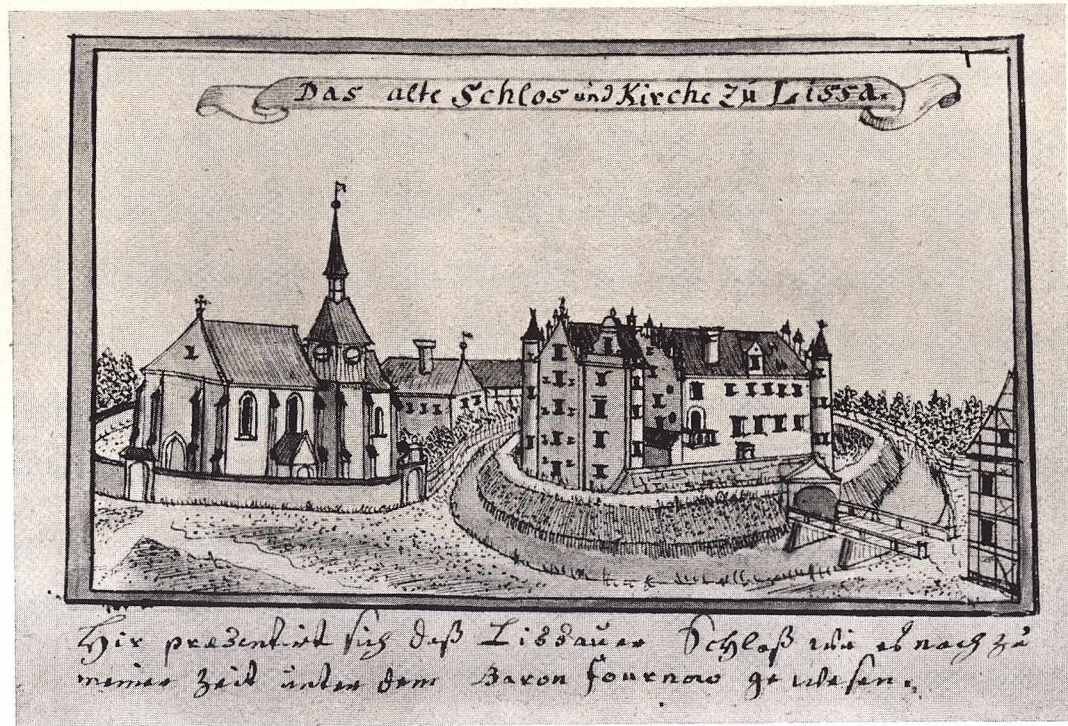 Das alte Schlos und Kirche zu Lissa.
Hir præsentirt sich daß Lissauer Schloß wie es noch zu
meiner Zeit unter dem Baron fournow gewesen.